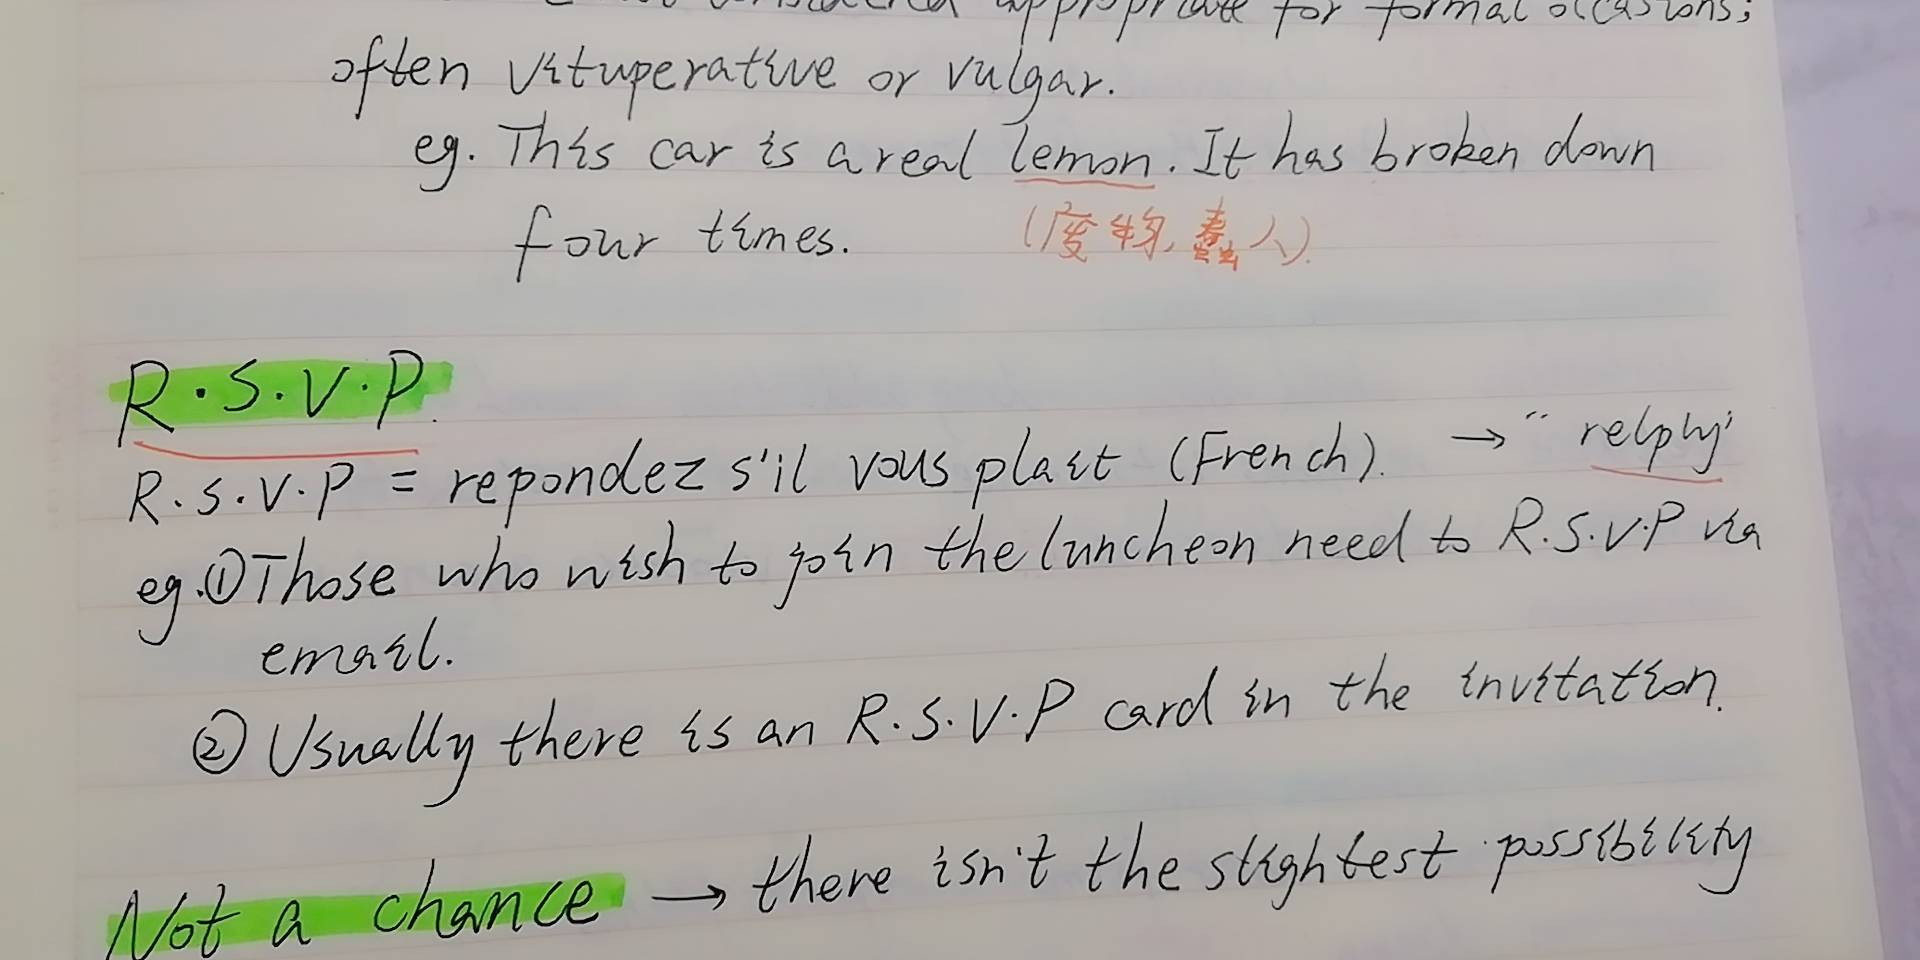 considered appropriate for formal occasions;
often vituperative or vulgar.
eg. This car is a real lemon. It has broken down
four times. (废物, 蠢人).
R.S.V.P.
R.S.V.P = repondez s'il vous plait (French). → "relphy"
eg. ①Those who wish to join the luncheon need to R.S.V.P via
email.
②Usually there is an R.S.V.P card in the invitation.
Not a chance → there isn't the slightest possibility